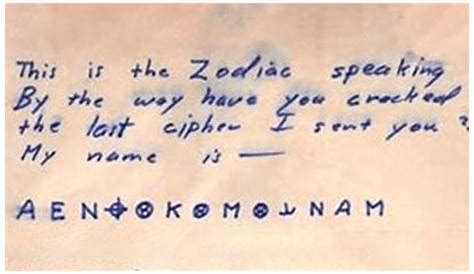 This is the Zodiac speaking
By the way have you cracked
the last cipher I sent you ?
My name is —
A E N ⌖ ⊗ K ⊗ M ⊗ ⅄ N A M